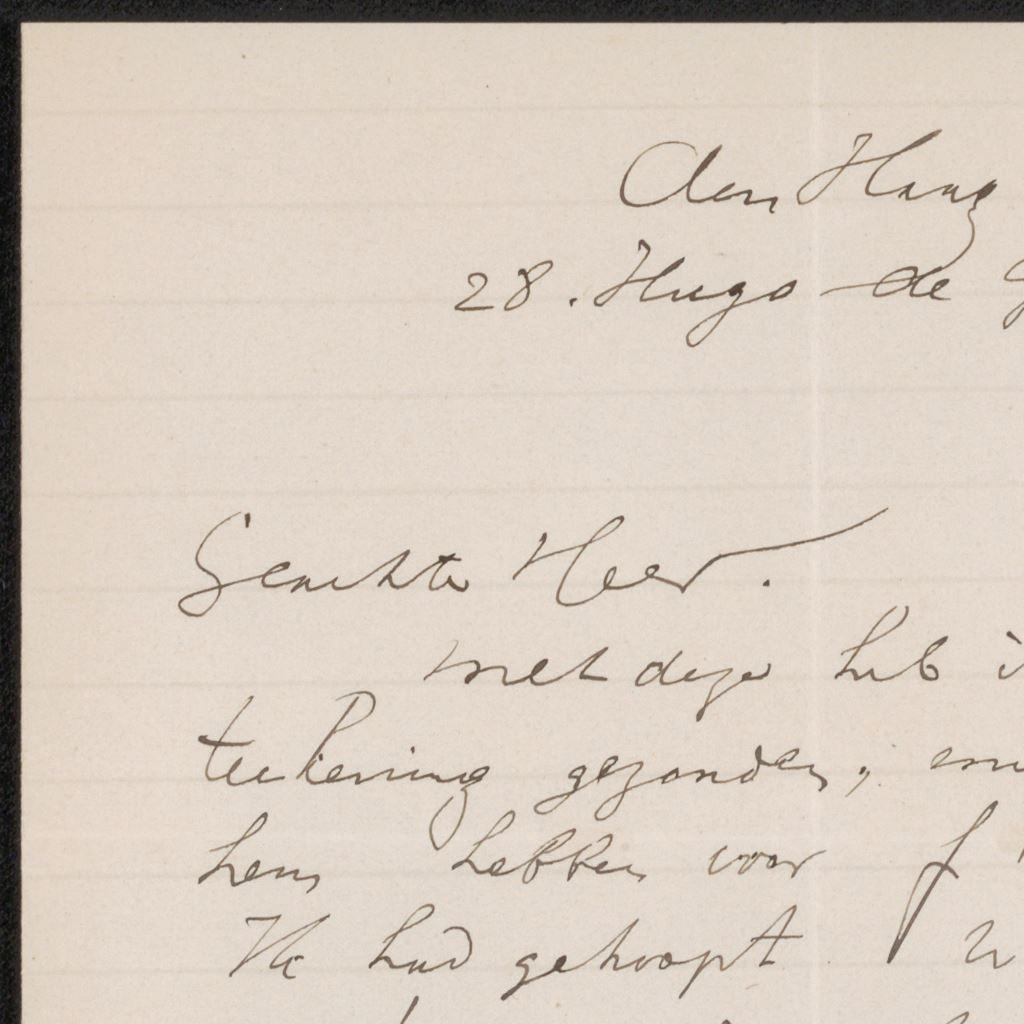 den Haag
28. Hugo de G
Geachte Heer.
met deze heb i
teekening gezonden,
hem hebben voor f
Ik had gehoopt U